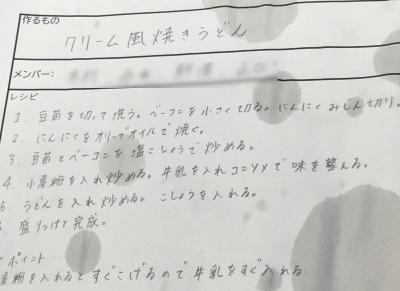 作るもの
クリーム風焼きうどん
メンバー:
レシピ
1. 豆苗を切って洗う。ベーコンを小さく切る。にんにくみじん切り。
2. にんにくをオリーブオイルで焼く。
3. 豆苗とベーコンを塩こしょうで炒める。
4. 小麦粉を入れ炒める。牛乳を入れコンソメで味を整える。
5. うどんを入れ炒める。こしょうを入れる。
盛りつけて完成。
ポイント
麦粉を入れるとすぐこげるので牛乳をすぐ入れる